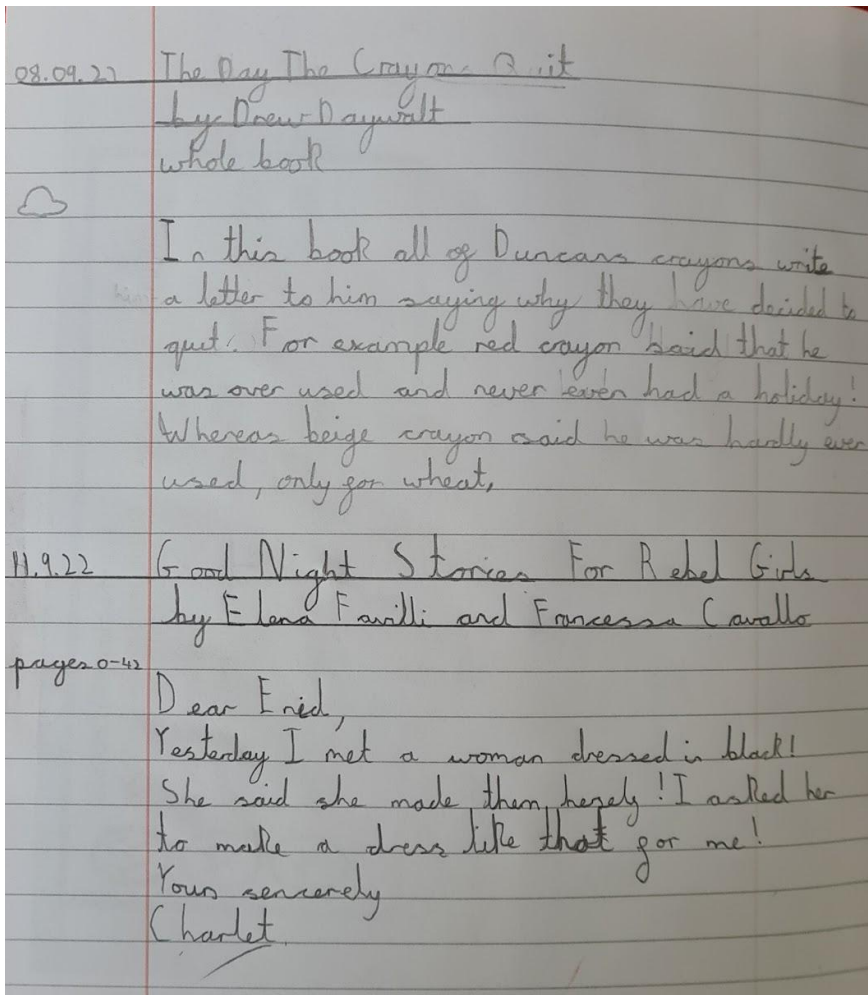 08.09.22 The Day The Crayons Quit
by Drew Daywalt
whole book
In this book all of Duncans crayons write
a letter to him saying why they have decided to
quit. For example red crayon said that he
was over used and never even had a holiday!
Whereas beige crayon said he was hardly ever
used, only for wheat,
11.9.22 Good Night Stories For Rebel Girls
by Elena Favilli and Francessa Cavallo
pages 0-42
Dear Enid,
Yesterday I met a woman dressed in black!
She said she made them hersely! I asked her
to make a dress like that for me!
Yours sencerely
Charlet